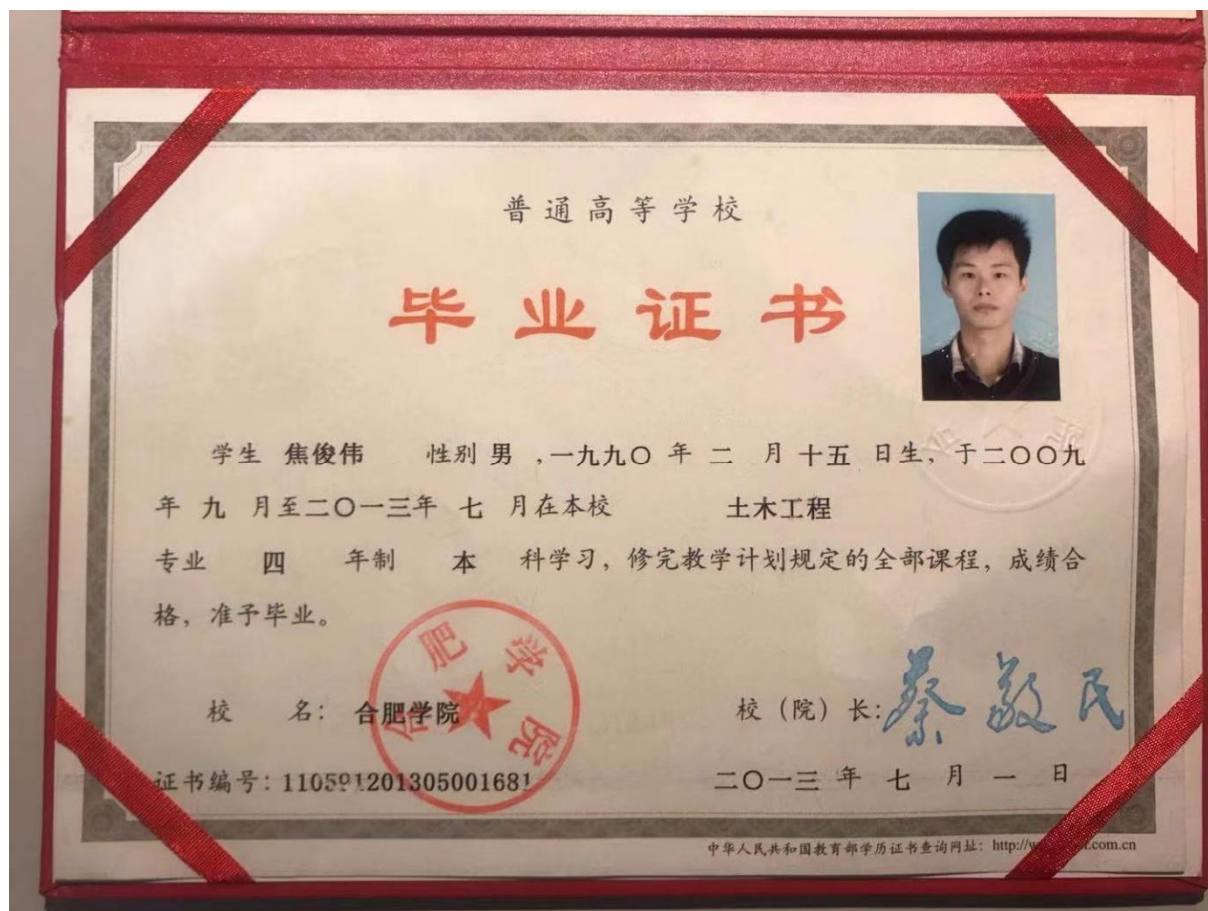 普通高等学校
毕业证书
学生 焦俊伟 性别 男 ,一九九〇 年 二 月 十五 日生, 于二〇〇九
年 九 月至二〇一三年 七 月在本校 土木工程
专业 四 年制 本 科学习, 修完教学计划规定的全部课程, 成绩合
格, 准予毕业。
合肥学院
校 名: 合肥学院 校 (院) 长: 蔡敬民
证书编号: 110591201305001681 二〇一三 年 七 月 一 日
中华人民共和国教育部学历证书查询网址: http://
.com.cn